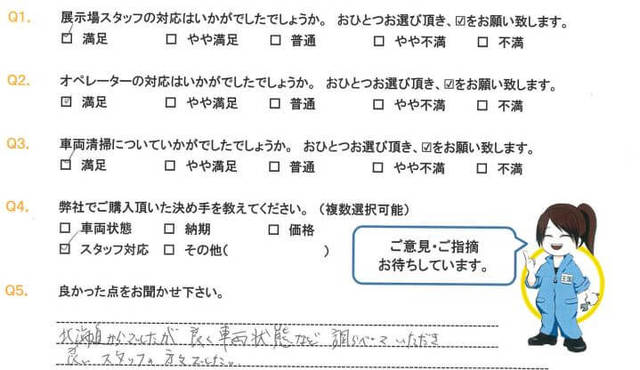 Q1. 展示場スタッフの対応はいかがでしたでしょうか。 おひとつお選び頂き、☑をお願い致します。
☑ 満足 □ やや満足 □ 普通 □ やや不満 □ 不満
Q2. オペレーターの対応はいかがでしたでしょうか。 おひとつお選び頂き、☑をお願い致します。
☑ 満足 □ やや満足 □ 普通 □ やや不満 □ 不満
Q3. 車両清掃についていかがでしたでしょうか。 おひとつお選び頂き、☑をお願い致します。
☑ 満足 □ やや満足 □ 普通 □ やや不満 □ 不満
Q4. 弊社でご購入頂いた決め手を教えてください。（複数選択可能）
□ 車両状態 □ 納期 □ 価格
☑ スタッフ対応 □ その他( )
ご意見・ご指摘
お待ちしています。
Q5. 良かった点をお聞かせ下さい。
北海道からでしたが 良く車両状態など 調べていただき
良い スタッフの 方でした。